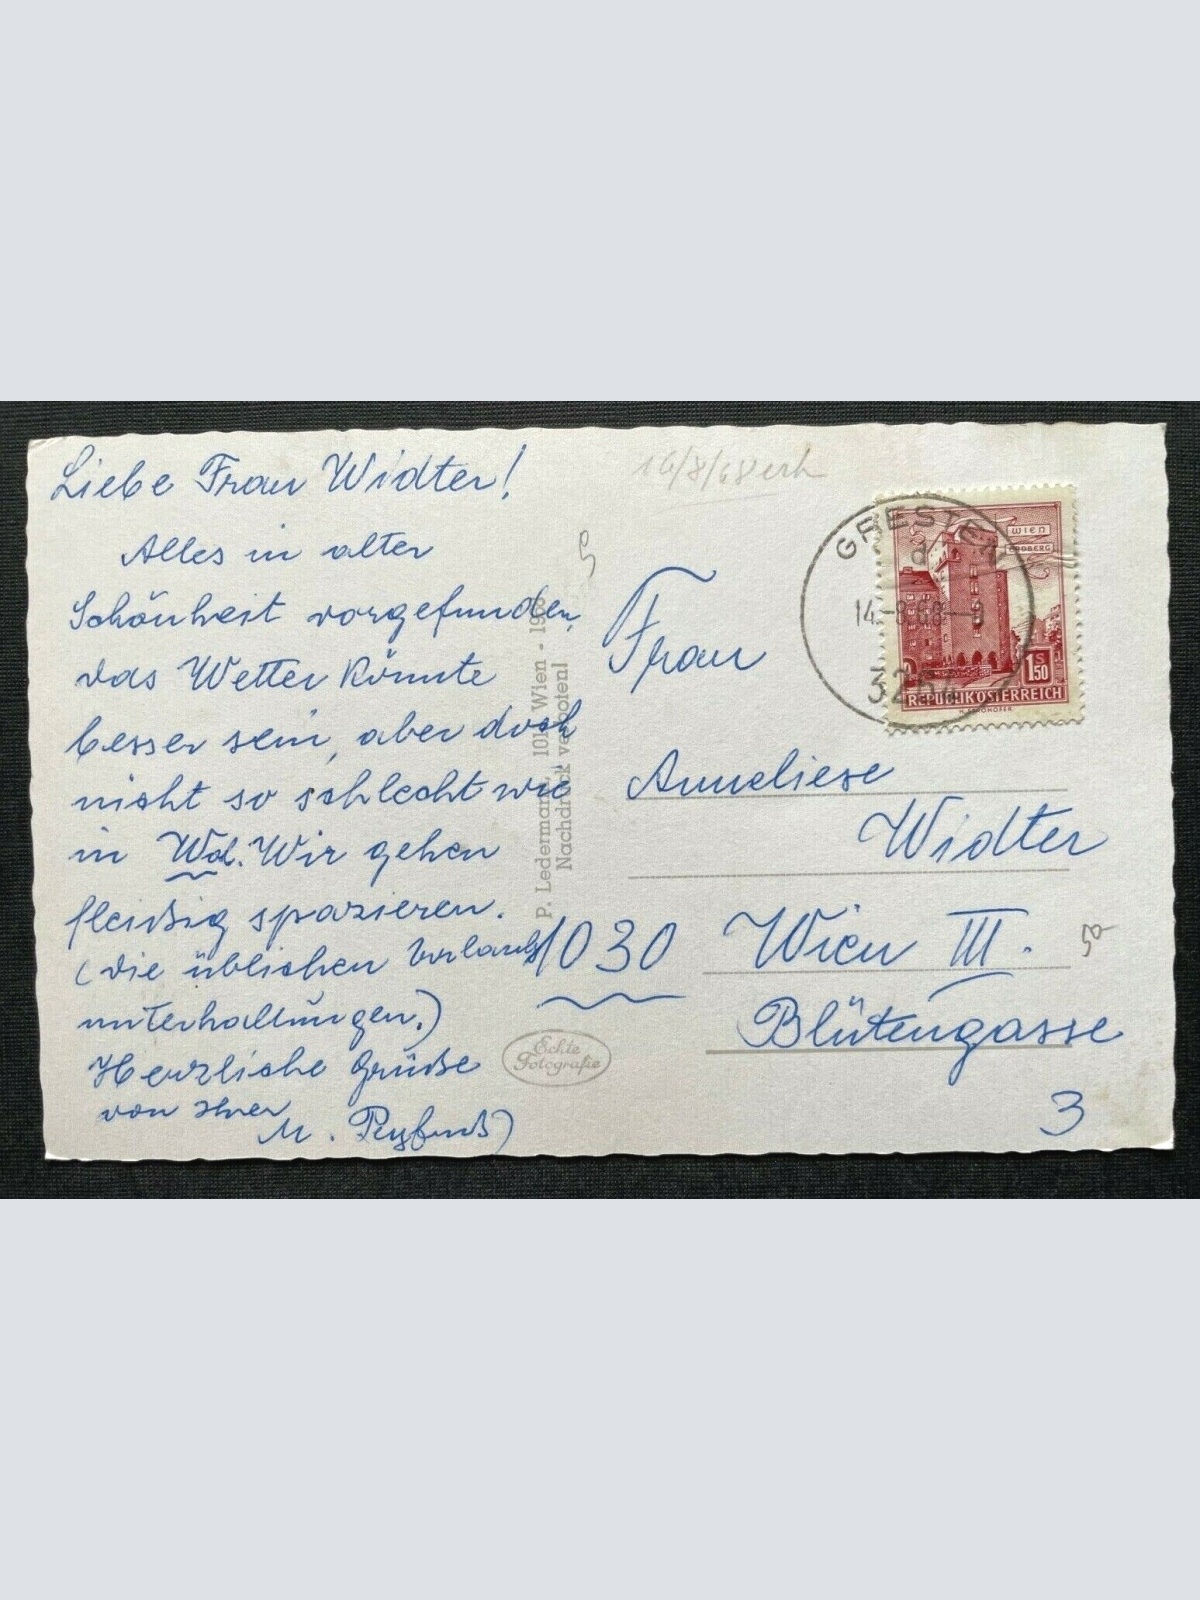 Liebe Frau Widter!
Alles in alter
Schönheit vorgefunden,
das Wetter könnte
besser sein, aber doch
nicht so schlecht wie
in Wdl. Wir gehen
fleißig spazieren.
(die üblichen
unterhaltungen.)
Herzliche Grüße
von Ihrer
M.
P. Ledermann, Wien - 196
Nachdruck verboten!
Echte
Fotografie
16/8/68 erh
GRESTEN
a
14.-8.68-9
3264
WIEN
ERDBERG
1S50
REPUBLIK ÖSTERREICH
Frau
Anneliese
Widter
1030 Wien III.
Blütengasse
3
50